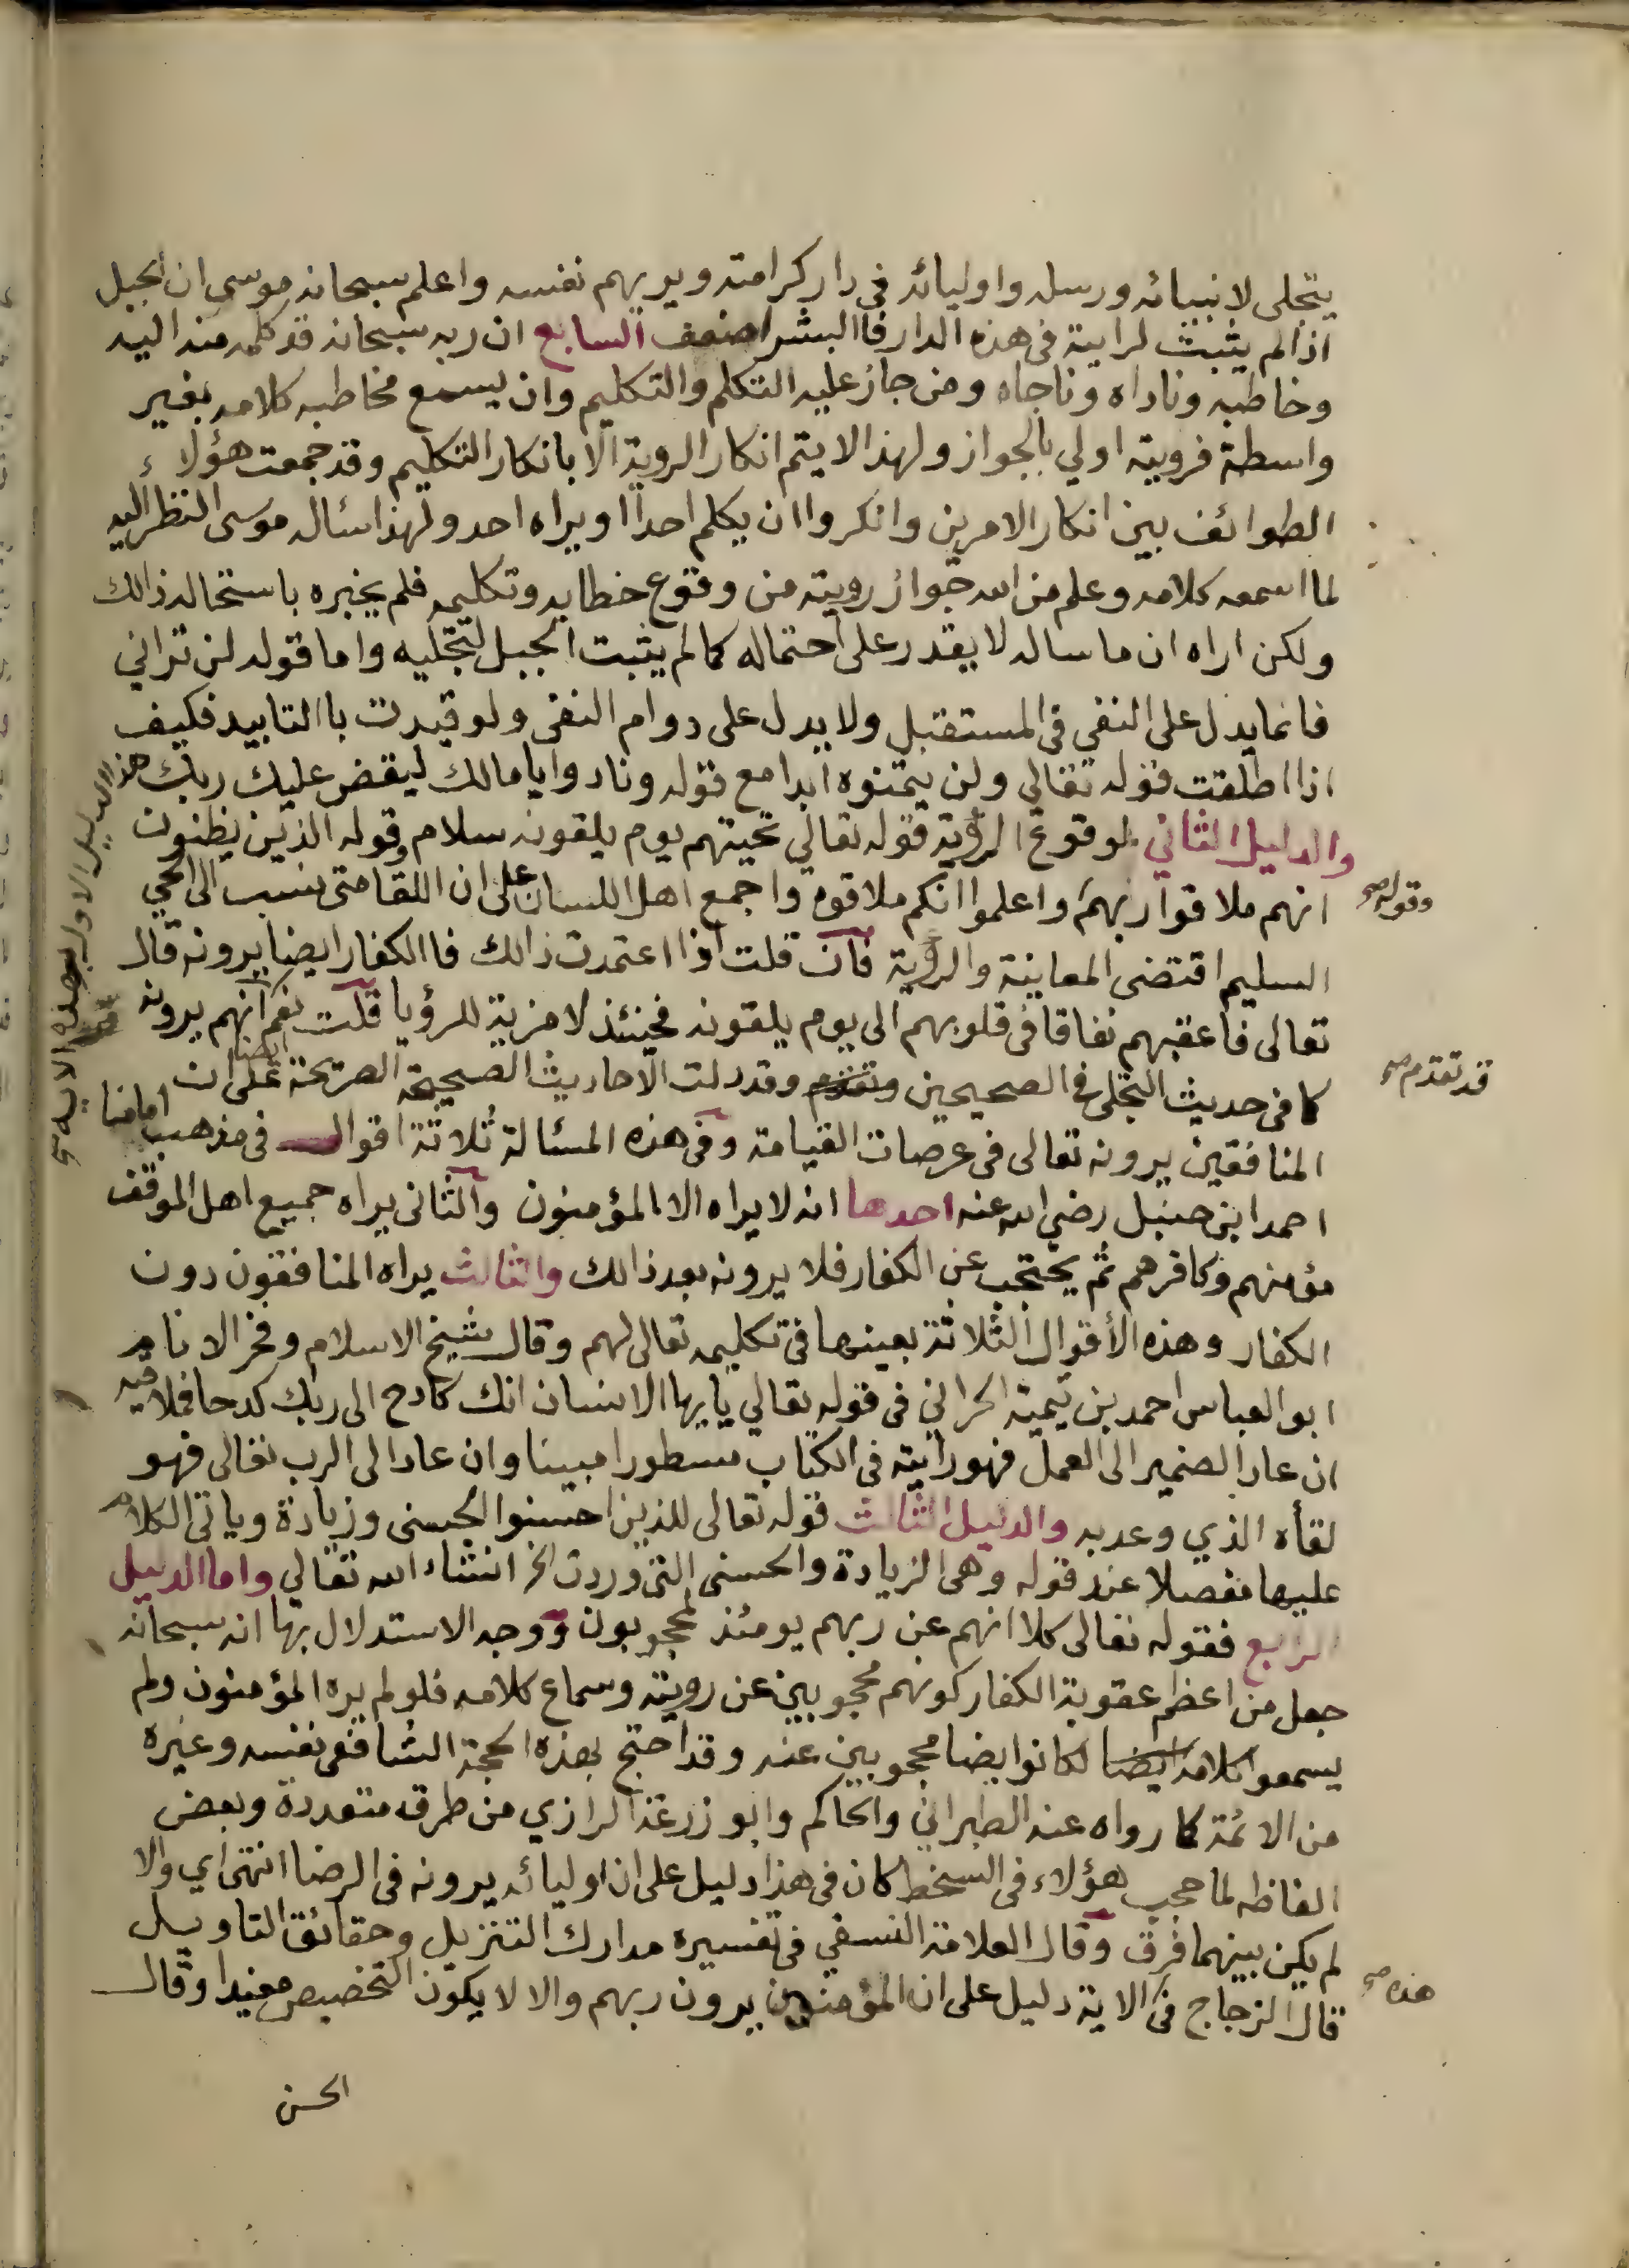 يتجلى لانبيائه ورسله واوليائه في دار كرامته ويريهم نفسه واعلم سبحانه موسى ان الجبل
اذا لم يثبت لرايته في هذه الدار فاالبشر اضعف السابع ان ربه سبحانه قد كلمه منه اليه
وخاطبه وناداه وناجاه ومن جاز عليه التكلم والتكليم وان يسمع مخاطبه كلامه بغير
واسطة فرويته اولي بالجواز ولهذا لا يتم انكار الروية الا بانكار التكليم وقد جمعت هؤلاء
الطوائف بين انكار الامرين وانكروا ان يكلم احدا او يراه احد ولهذا سئاله موسى النظر اليه
لما اسمعه كلامه وعلم من الله جواز رويته من وقوع خطابه وتكليمه فلم يخبره باستحاله ذالك
ولكن اراه ان ما ساله لا يقدر على احتماله كما لم يثبت الجبل لتجليه واما قوله لن تراني
فانما يدل على النفي في المستقبل ولا يدل على دوام النفى ولو قيدت باالتابيد فكيف
اذا اطلقت قوله تعالي ولن يتمنوه ابدا مع قوله ونادوا يا مالك ليقض عليك ربك هذا الدليل الاول بهذه الاية
والدليل الثاني لوقوع الرؤية قوله تعالي تحيتهم يوم يلقونه سلام وقوله الذين يظنون
انهم ملاقوا ربهم واعلموا انكم ملاقوه واجمع اهل اللسان على ان اللقا متى نسب الى الحي
وقوله صح
السليم اقتضى المعاينة والرؤية فان قلت اذا اعتمدت ذالك فاالكفار ايضا يرونه قال
تعالى فاعقبهم نفاقا في قلوبهم الى يوم يلقونه فحينئذ لا مزية للرؤيا قلت نعم انهم يرونه
كما في حديث التجلي في الصحيحين وتقدم وقد دلت الاحاديث الصحيحة الصريحة ايضا على ان
قد تقدم صح
المنافقين يرونه تعالى في عرصات القيامة وفي هذه المسئالة ثلاثة اقوال في مذهب امامنا
احمد ابن حنبل رضي الله عنه احدها انه لا يراه الا المؤمنون والثاني يراه جميع اهل الموقف
مؤمنهم وكافرهم ثم يحتجب عن الكفار فلا يرونه بعد ذالك والثالث يراه المنافقون دون
الكفار وهذه الأقوال الثلاثة بعينها في تكليمه تعالى لهم وقال شيخ الاسلام وفخر الانام
ابو العباس احمد بن تيمية الحراني في قوله تعالي يايها الانسان انك كادح الى ربك كدحا فملاقيه
ان عاد الضمير الى العمل فهو رايته في الكتاب مسطورا مبينا وان عاد الى الرب تعالى فهو
لقأه الذي وعد به والدليل الثالث قوله تعالى للذين احسنوا الحسنى وزيادة وياتي الكلام
عليها مفصلا عند قوله وهي الزيادة والحسنى التي وردت الخ انشاء الله تعالي واما الدليل
الرابع فقوله تعالى كلا انهم عن ربهم يومئذ لمحجوبون ووجه الاستدلال بها انه سبحانه
جعل من اعظم عقوبة الكفار كونهم محجوبين عن رويته وسماع كلامه فلو لم يره المؤمنون ولم
يسمعوا كلامه ايضا لكانوا ايضا محجوبين عنه وقد احتج بهذه الحجة الشافعي نفسه وغيره
من الائمة كما رواه عنه الطبراني والحاكم وابو زرعة الرازي من طرق متعددة وبعض
الفاظه لما حجب هؤلاء في السخط كان في هذا دليل على ان اوليائه يرونه في الرضا انتهى اي والا
لم يكن بينهما فرق وقال العلامة النسفي في تفسيره مدارك التنزيل وحقائق التاويل
قال الزجاج في الاية دليل على ان المؤمنين يرون ربهم والا لا يكون التخصيص مفيدا وقال
هذه صح
الحسن